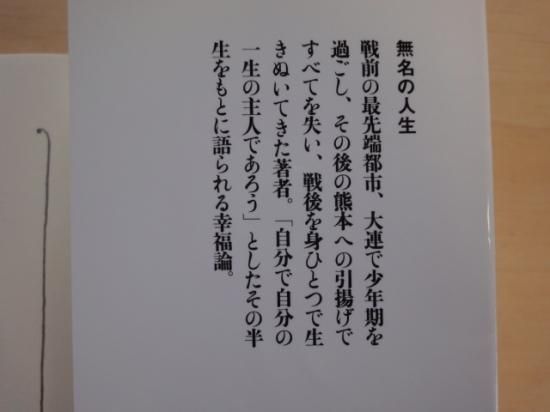 無名の人生
戦前の最先端都市、大連で少年期を
過ごし、その後の熊本への引揚げで
すべてを失い、戦後を身ひとつで生
きぬいてきた著者。「自分で自分の
一生の主人であろう」としたその半
生をもとに語られる幸福論。